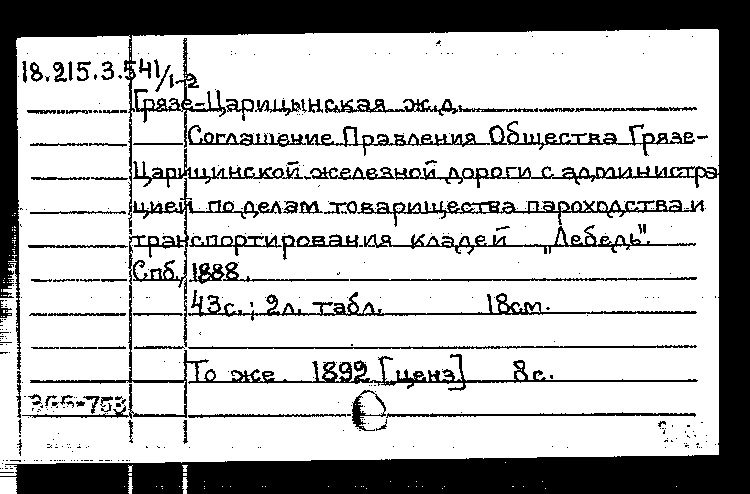 18.215.3.541/1-2
Грязе-Царицынская ж.д.
Соглашение Правления Общества Грязе-
Царицинской железной дороги с администра
цией по делам товарищества пароходства и
транспортирования кладей „Лебедь".
Спб., 1888.
43с.; 2л. табл. 18см.
То же 1892 [ценз] 8с.